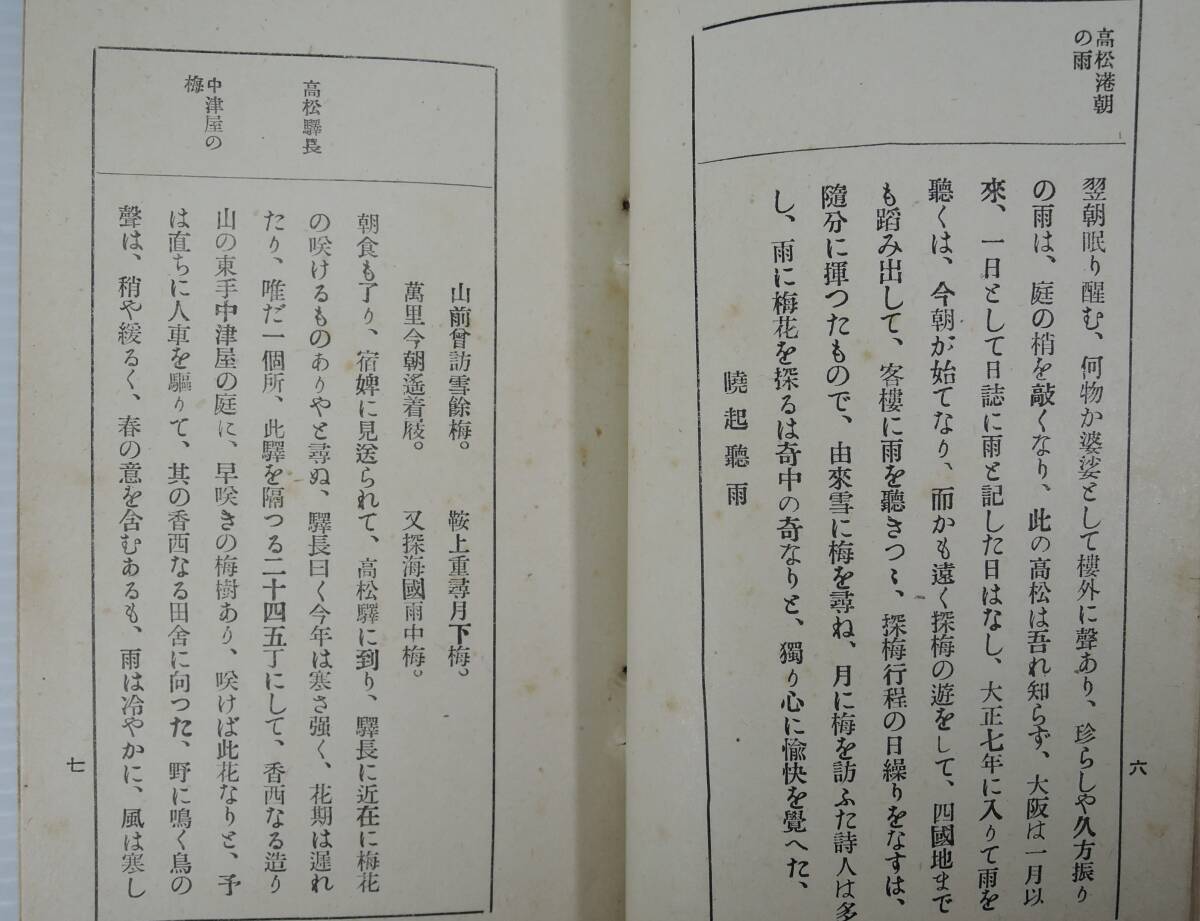 高松港朝
の雨
翌朝眠り醒む、何物か婆娑として樓外に聲あり、珍らしや久方振り
の雨は、庭の梢を敲くなり、此の高松は吾れ知らず、大阪は一月以
來、一日として日誌に雨と記した日はなし、大正七年に入りて雨を
聽くは、今朝が始てなり、而かも遠く探梅の遊をして、四國地まで
も蹈み出して、客樓に雨を聽きつゝ、探梅行程の日繰りをなすは、
隨分に揮つたもので、由來雪に梅を尋ね、月に梅を訪ふた詩人は多
し、雨に梅花を探るは奇中の奇なりと、獨り心に愉快を覺へた、
曉起聽雨
六
高松驛長
中津屋の
梅
山前曾訪雪餘梅。　鞍上重尋月下梅。
萬里今朝遙着屐。　又探海國雨中梅。
朝食も了り、宿婢に見送られて、高松驛に到り、驛長に近在に梅花
の咲けるものありやと尋ぬ、驛長曰く今年は寒さ强く、花期は遲れ
たり、唯だ一個所、此驛を隔つる二十四五丁にして、香西なる造り
山の東手中津屋の庭に、早咲きの梅樹あり、咲けば此花なりと、予
は直ちに人車を驅りて、其の香西なる田舍に向つた、野に鳴く鳥の
聲は、稍や緩るく、春の意を含むあるも、雨は冷やかに、風は寒し
七